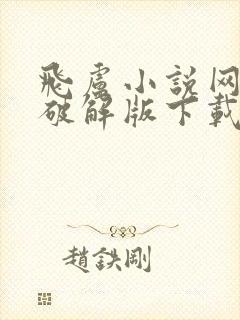 飛盧小說网
破解版下載
趙鉄剛